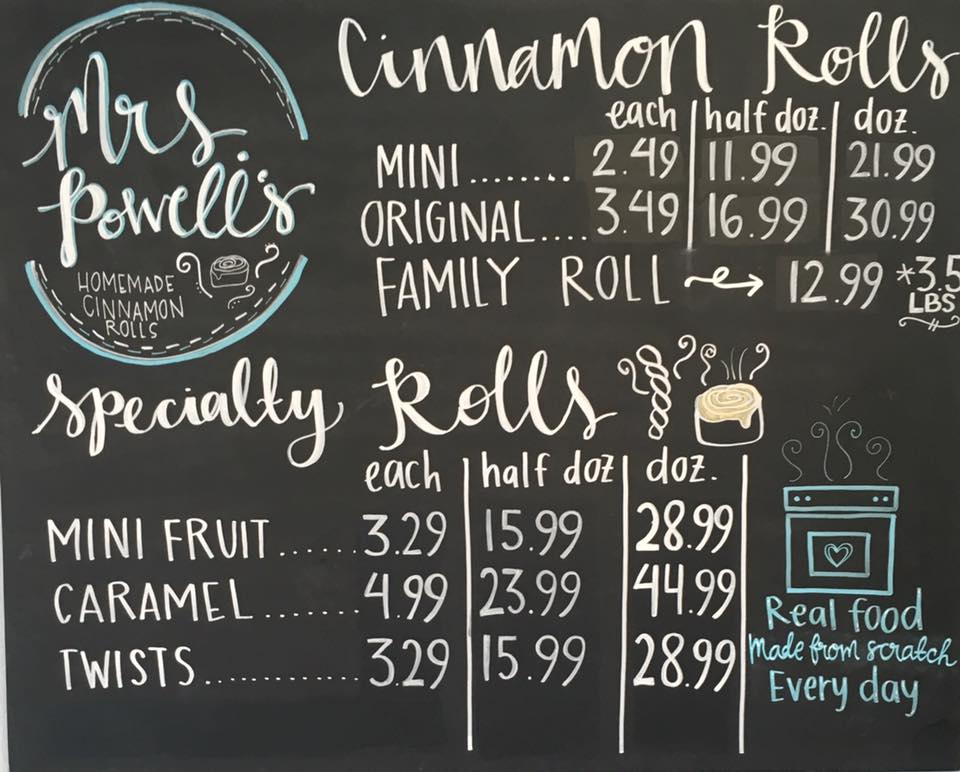 Mrs.
Powell's
HOMEMADE
CINNAMON
ROLLS
Cinnamon Rolls
each half doz. doz.
MINI........ 2.49 11.99 21.99
ORIGINAL.... 3.49 16.99 30.99
FAMILY ROLL → 12.99 *3.5
LBS
Specialty Rolls
each half doz doz.
MINI FRUIT...... 3.29 15.99 28.99
CARAMEL....... 4.99 23.99 44.99
TWISTS............ 3.29 15.99 28.99
Real food
Made from scratch
Every day